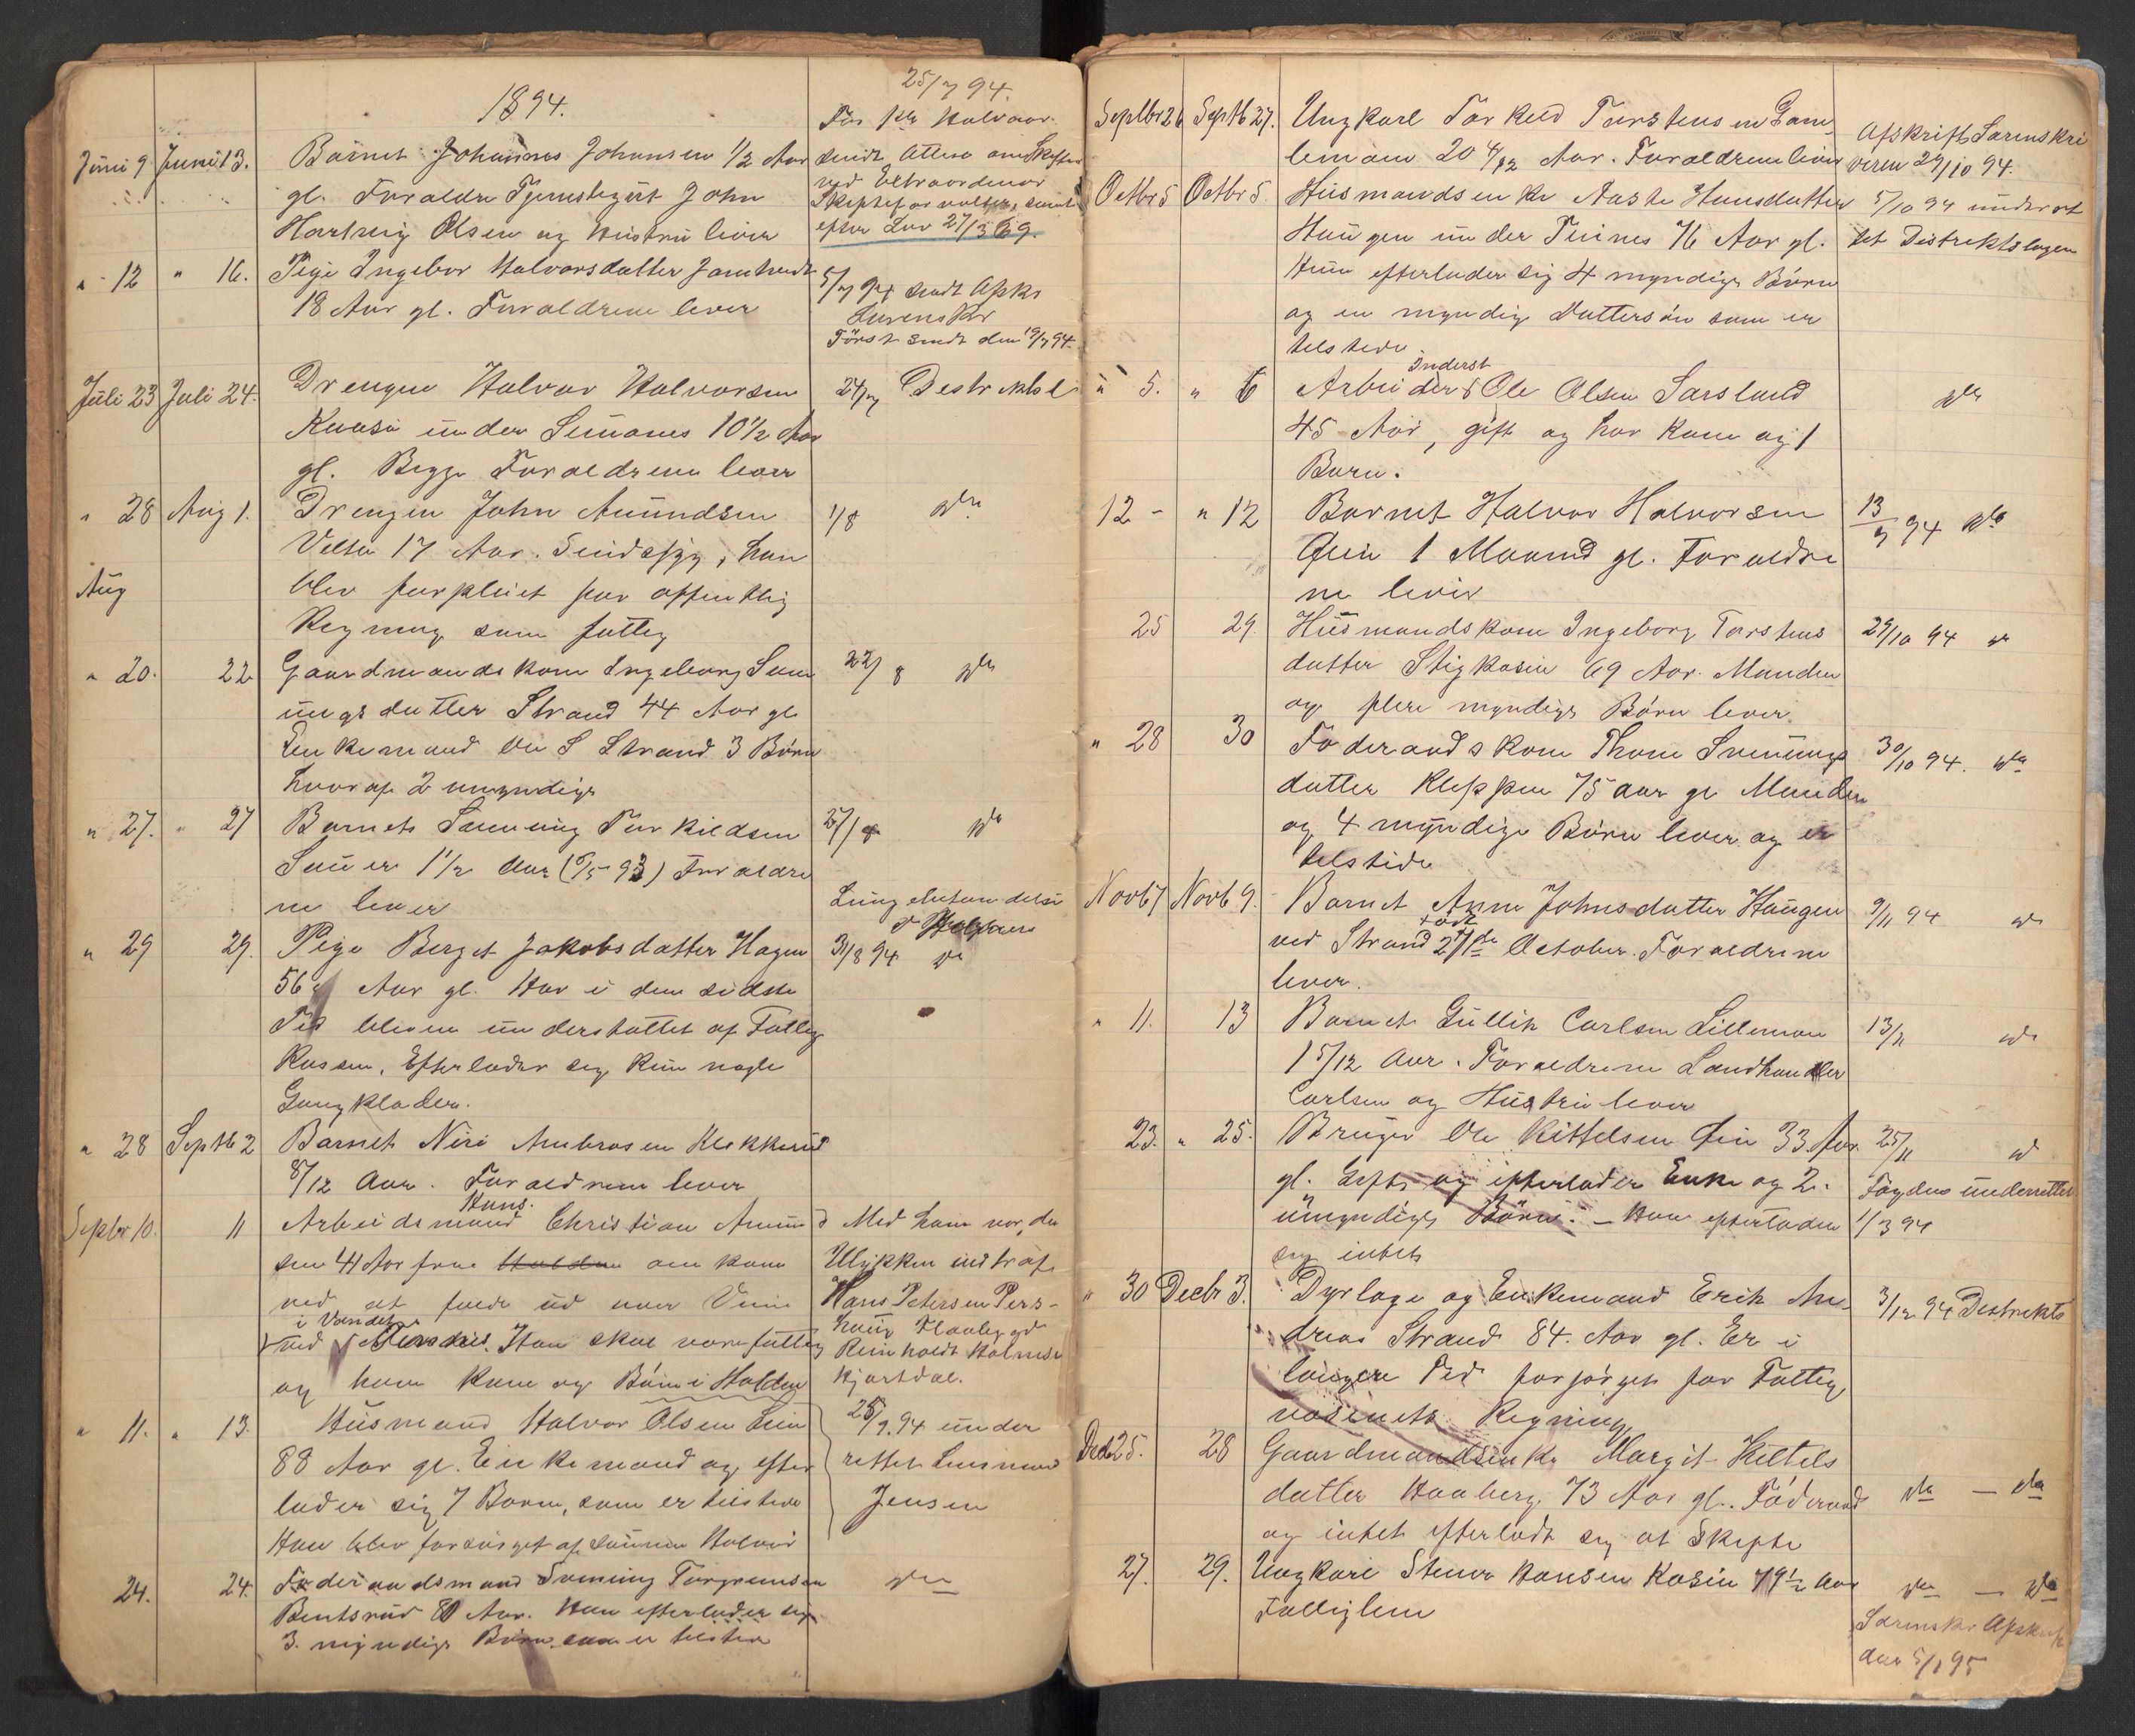 1894.
25/7 94.
Juni 9 Juni 13. Barnet Johannes Johansen 1/2 Aar
gl. Foraldre Tjenestegut John
Hartvig Olsen og Hustru lever
For 1ste Halvaar
sendt Attest om Skifter
ved Extraordinær
efter Lov 27/3 69.
" 12 " 16. Pige Ingebor Halvorsdatter
18 Aar gl. Foraldrene lever
5/7 94 sendt Afskr
Sorenskr
Først sendt den 19/7 94.
Juli 23 Juli 24. Drengen Halvor Halvorsen
under 10 1/2 Aar
gl. Begge Foraldrene lever
24/7 Destriktsl
" 28 Aug 1. Drengen John Amundsen
Velta 17 Aar. Sindssyg, han
blev forpleiet for offentlig
Regning som fattig
1/8 do
Aug
" 20. 22 Gaardmandskone Ingeborg Svenn
ungsdatter Strand 44 Aar gl
Enkemand Ole S Strand 3 Børn
hvoraf 2 umyndige
22/8 do
" 27. " 27 Barnet Svenning Torkildsen
1 1/2 Aar Foraldre
ne lever
27/8 do
Lungebetændelse
" 29 29. Pige Berget Jakobsdatter Hagen
56 Aar gl. Har i den sidste
Tid bleven understøttet af Fattig
Kassen, Efterlader sig kun nogle
Gangklader.
31/8 94 do
" 28 Septb 2 Barnet Niri Ambrosen Klekkerud
8/12 Aar. Foraldrene lever
Septbr 10. 11 Arbeidsmand Hans Christian Amund
sen 41 Aar fra Halden om kom
ved at falde ud over
i Vandet
ved Han skal være fattig
og have Kone og Børn i Halden
Med ham var, da
Ulykken indtraf
Hans Petersen Pers-
haug Flaabygd
Reinholdt Holmen
Hjartdal.
" 11. " 13. Husmand Halvor Olsen Lien
88 Aar gl. Enkemand og efter
lader sig 7 Børn, som er tilstede
Han blev forsørget af Sønnen Halvor
25/9.94 under
rettet Lensmand
Jensen
24. 24. Føderaadsmand Svening Torgrimsen
Bentsrud 80 Aar. Han efterlader sig
3 myndige Børn som er tilstede
do
Septbr 26 Septb 27. Ungkarl Torkild Torstensen Gam
lemoen 20 4/12 Aar. Foraldrene lever
Afskrift Sorenskri
veren 29/10 94.
Octbr 5 Octbr 5. Husmandsenke Aaste Hansdatter
Haugen under Tuines 76 Aar gl.
Hun efterlader sig 4 myndige Børn
og en myndig Dattersøn som er
tilstede
5/10 94 underret
tet Distriktslægen
" 5. " 6 Arbeider Inderst Ole Olsen Sarsland
45 Aar, gift og har Kone og 1
Barn.
do
12 - " 12 Barnet Halvor Halvorsen
Øien 1 Maaned gl. Foraldre
ne lever
13/9 94 do
25 29. Husmandskone Ingeborg Torstens
datter Stigkasin 69 Aar. Manden
og flere myndige Børn lever.
29/10 94 do
" 28 30 Føderaadskone Thone Svennings
datter Kleppen 75 aar gl Manden
og 4 myndige Børn lever og er
tilstede
30/10 94. do
Novb 7 Novb 9. Barnet Anne Johnsdatter Haugen
ved Strand født 27de October. Foraldrene
lever.
9/11 94 do
" 11. 13 Barnet Gullik Carlsen Lillemon
1 5/12 Aar. Foraldrene Landhandler
Carlsen og Hustru lever
13/11 do
23. " 25. Bruger Ole Kittelsen Øin 33 Aar
gl. Gift og efterlader Enke og 2.
umyndige Børn. - Han efterlader
sig intet
25/11 do
Fogden underrettet
1/3 94
" 30 Decbr 3. Dyrlæge og Enkemand Erik An
dreas Strand 84. Aar gl. Er i
længere Tid forsørget for Fattig
væsenets Regning
3/12 94 Destrikts
Decb 25. 28 Gaardmandsenke Margit Kittels
datter Haaberg 73 Aar gl. Føderaad
og intet efterladt sig at Skifte
do - do
27. 29. Ungkarl Steinar Hansen Kasin 79 1/2 Aar
Fattiglem
do - do
Sorenskr Afskrift
den 5/1 95